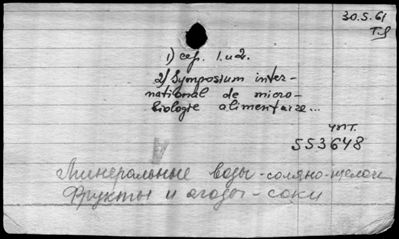 30.5.61
T.g
1) сер. 1. и 2.
2) Symposium inter-
national de micro-
biologie alimentaire...
чит.
553648
Минеральные воды - соляно-щелочн
Фрукты и ягоды - соки